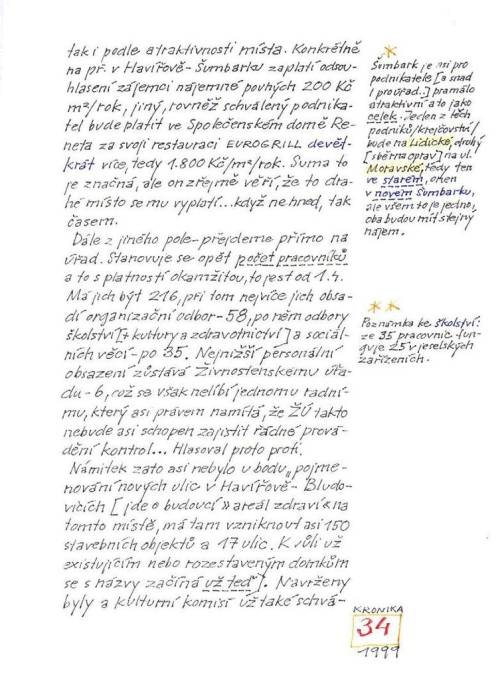 tak i podle atraktivnosti místa. Konkrétně
na př. v Havířově-Šumbarku zaplatí odsou-
hlasení zájemci nájemné pouhých 200 Kč
m²/rok, jiný, rovněž schválený podnika-
tel bude platit ve Společenském domě Re-
neta za svoji restauraci EUROGRILL devět-
krát více, tedy 1.800 Kč/m²/rok. Suma to
je značná, ale on zřejmě věří, že to dra-
hé místo se mu vyplatí...když ne hned, tak
časem.
Dále z jiného pole-přejdeme přímo na
úřad. Stanovuje se opět počet pracovníků
a to s platností okamžitou, to jest od 1.4.
Má jich být 216, při tom nejvíce jich obsa-
dí organizační odbor-58, po něm odbory
školství [+ kultury a zdravotnictví] a sociál-
ních věcí-po 35. Nejnižší personální
obsazení zůstává Živnostenskému úřa-
du-6, což se však nelíbí jednomu radní-
mu, který asi právem namítá, že ŽÚ takto
nebude asi schopen zajistit řádné prová-
dění kontrol... Hlasoval proto proti.
Námitek zato asi nebylo u bodu „pojme-
nování nových ulic v Havířově-Bludo-
vicích [jde o budoucí »areál zdraví« na
tomto místě, má tam vzniknout asi 150
stavebních objektů a 17 ulic. Kvůli už
existujícím nebo rozestavěným domkům
se s názvy začíná už teď]. Navrženy
byly a kulturní komisí už také schvá-
*
Šumbark je asi pro
podnikatele [a snad
i pro úřad..] pramálo
atraktivní a to jako
celek. Jeden z těch
podniků/krejčovství/
bude na Lidické, druhý
[sběrna oprav] na ul.
Moravské, tedy ten
ve starém, onen
v novém Šumbarku,
ale všem to je jedno,
oba budou mít stejný
nájem.
**
Poznámka ke školství:
ze 35 pracovnic fun-
guje 25 v jeselských
zařízeních.
KRONIKA
34
1999